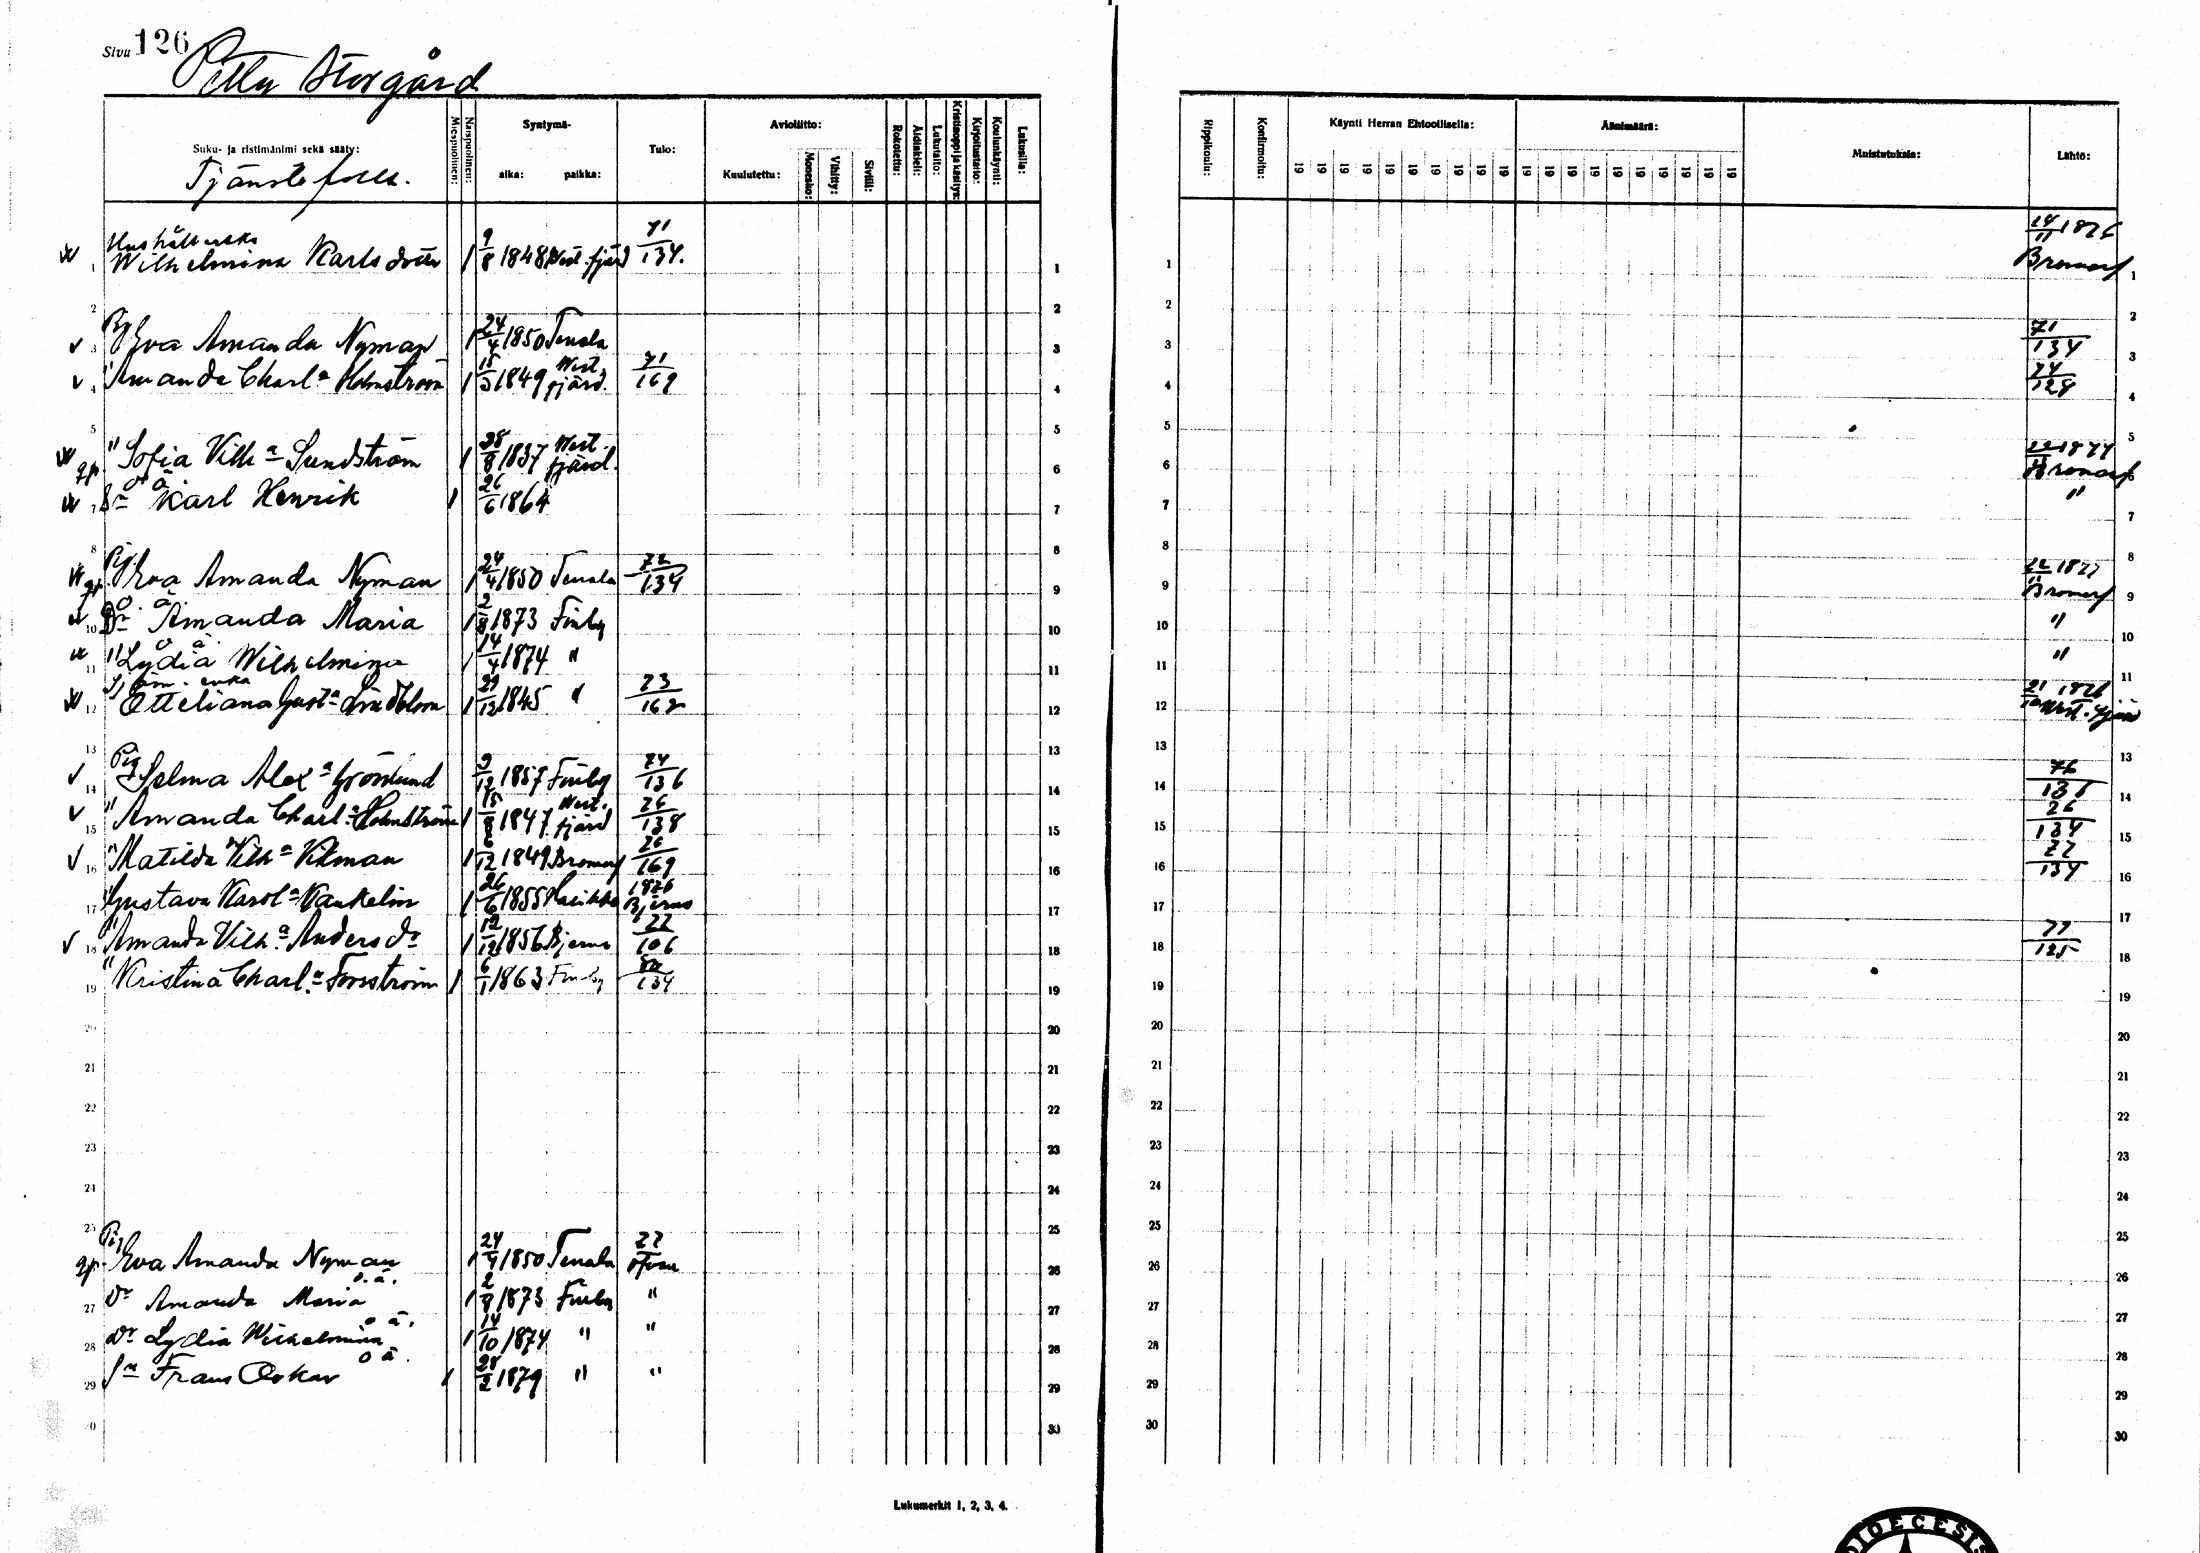 Sivu 126
Storgård
Suku- ja ristimänimi sekä sääty:
Miespuolinen:
Naispuolinen:
Syntymä-
aika:
paikka:
Tulo:
Avioliitto:
Kuulutettu:
Monesko:
Vihitty:
Siviili:
Rokotettu:
Äidinkieli:
Lukutaito:
Kristinoppi ja käsitys:
Kirjoitustaito:
Koulunkäynti:
Lukusilla:
Rippikoulu:
Konfirmoitu:
Käynti Herran Ehtoollisella:
19 19 19 19 19 19 19 19 19 19
Äänimäärä:
19 19 19 19 19 19 19 19 19 19
Muistutuksia:
Lähtö:
Tjänstefolk.
Hushållerska
1 Wilhelmina Karlsdotter 1 9/8 1848 West.fjärd 71/134. 1 1 Bromarf 1
2 2 2 2
Pig
3 Eva Amanda Nyman 1 24/4 1850 Tenala 3 3 71/134 3
4 " Amanda Charl:a Holmström 1 1849 West.fjärd. 71/169 4 4 74/128 4
5 5 5 5
gp. " Sofia Vilh:a Sundström 1 28/8 1837 West.fjärd. 6 6 1877 Bromarf 6
o ä
7 Sn Karl Henrik 1 26/6 1864 7 7 " 7
8 8 8 8
Pig.
gp. Eva Amanda Nyman 1 24/4 1850 Tenala 72/134 9 9 1877 Bromarf 9
o. ä.
10 Dr Amanda Maria 1 2/8 1873 Finby 10 10 " 10
o ä
11 " Lydia Wilhelmina 1 14/4 1874 " 11 11 " 11
enka
12 Otteliana Gust:a Lindblom 1 29/12 1845 " 73/162 12 12 1876 West.fjärd 12
13 13 13 13
Pig
14 Selma Alex:a Grönlund 1 9/12 1857 Finby 74/136 14 14 76/136 14
15 " Amanda Charl:a Holmström 1 15/8 1847 West.fjärd 76/138 15 15 76/134 15
16 " Matilda Vilh:a Vikman 1 6/12 1849 Bromarf 76/169 16 16 77/134 16
17 " Gustava Karol:a 1 26/6 1855 1876 Bjerno 17 17 17
18 " Amanda Vilh:a Anders dr 1 12/12 1856 Bjerno 77/106 18 18 77/125 18
19 " Kristina Charl:a Forsström 1 6/1 1863 Finby 80/134 19 19 19
20 20 20 20
21 21 21 21
22 22 22 22
23 23 23 23
24 24 24 24
25 25 25 25
Pig
gp. Eva Amanda Nyman 1 24/4 1850 Tenala 77 26 26 26
o. ä.
27 Dr Amanda Maria 1 2/8 1873 Finby " 27 27 27
o ä.
28 Dr Lydia Wilhelmina 1 14/10 1874 " " 28 28 28
o ä.
29 Sn Frans Oskar 1 28/2 1879 " " 29 29 29
30 30 30 30
Lukumerkit 1, 2, 3, 4.
DIOECESIS